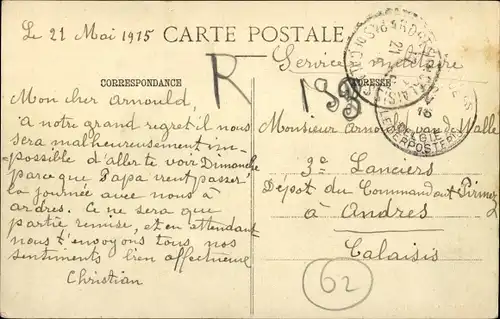 Le 21 Mai 1915
CARTE POSTALE
Service militaire
CORRESPONDANCE
ADRESSE
R
193
Mon cher Arnould,
A notre grand regret il nous
sera malheureusement im-
possible d'aller te voir Dimanche
parce que Papa vient passer
la journée avec nous à
Ardres. Ce ne sera que
partie remise, et en attendant
nous t'envoyons tous nos
sentiments bien affectueux
Christian
Monsieur Arnould van d Wall
3e Lanciers
Dépôt du Commandant Pirmez
à Andres
Calaisis
62